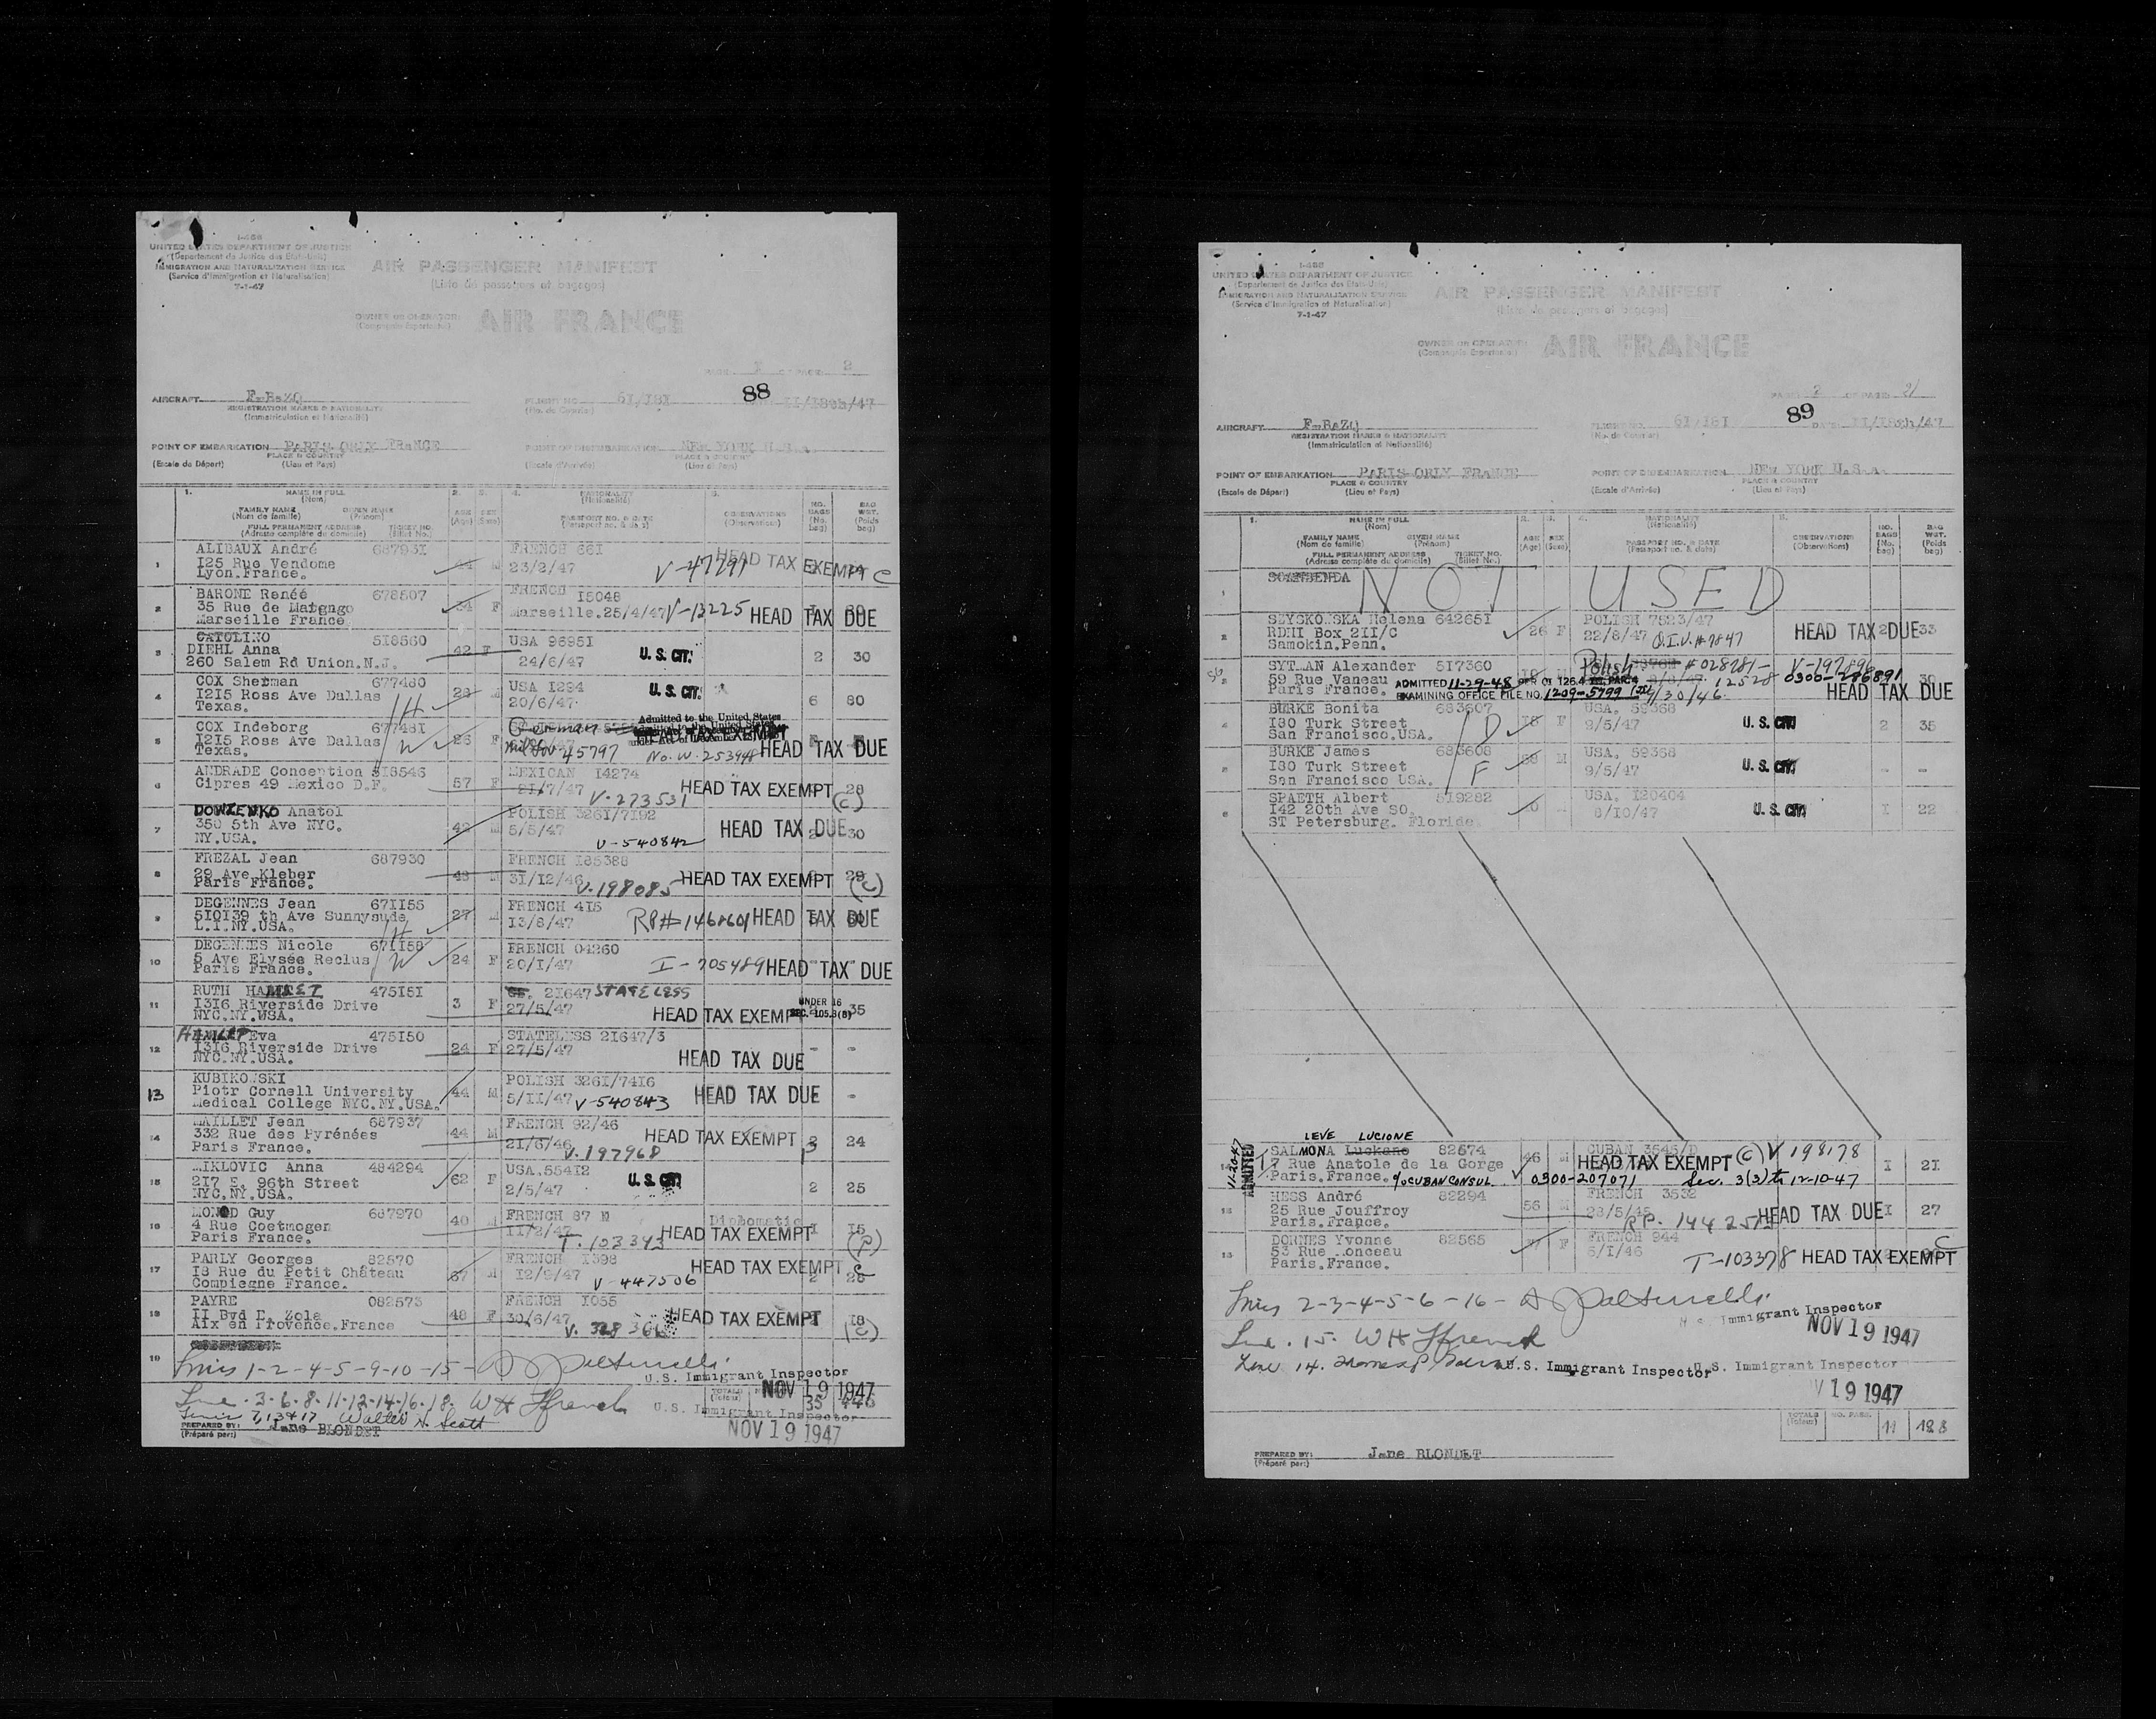 I-466
UNITED STATES DEPARTMENT OF JUSTICE
(Departement de Justice des Etats-Unis)
IMMIGRATION AND NATURALIZATION SERVICE
(Service d'Immigration et Naturalisation)
7-1-47
AIR PASSENGER MANIFEST
(Liste de passagers et bagages)
OWNER OR OPERATOR:
(Compagnie Exportante)
AIR FRANCE
88
AIRCRAFT F-BaZQ
REGISTRATION MARKS & NATIONALITY
(Immatriculation et Nationalité)
FLIGHT NO. 61/181
(No. de Courier)
POINT OF EMBARKATION PARIS ORLY FRANCE
PLACE & COUNTRY
(Escale de Départ) (Lieu et Pays)
POINT OF DISEMBARKATION NEW YORK U.S.a.
PLACE & COUNTRY
(Escale d'Arrivée) (Lieu et Pays)
1. NAME IN FULL (Nom)
FAMILY NAME (Nom de famille) GIVEN NAME (Prénom)
FULL PERMANENT ADDRESS (Adresse complète de domicile) TICKET NO. (Billet No.)
AGE (Age) SEX (Sexe)
NATIONALITY (Nationalité)
PASSPORT NO. & DATE (Passeport no. & date)
OBSERVATIONS (Observations)
NO. BAGS (No. bag) BAG WGT. (Poids bag)
1 ALIBAUX André 687931 M FRENCH 661
125 Rue Vendome 23/2/47 V-47291 HEAD TAX EXEMPT C
Lyon.France.
2 BARONE Renéé 678507 34 F FRENCH 15048
35 Rue de Marseille.25/4/47 V-13225 HEAD TAX DUE
Marseille France
3 CATOLINO 518560 USA 96951
DIEHL Anna 42 F 24/6/47 U.S. CIT. 2 30
260 Salem Rd Union.N.J.
4 COX Sherman 677480 M USA 1294 U.S. CIT.
1215 Ross Ave Dallas H 20/6/47 6 80
Texas.
5 COX Indeborg 677481 26 F German
1215 Ross Ave Dallas W 45797 No. W. 253948 HEAD TAX DUE
Texas.
Admitted to the United States
6 ANDRADE Conception 518546 57 F MEXICAN 14274
Cipres 49 Mexico D.F. 21/7/47 V-273531 HEAD TAX EXEMPT 28 (C)
7 DOWZENKO Anatol POLISH 3261/7192
350 5th Ave NYC. 42 M 5/5/47 HEAD TAX DUE 30
NY.USA. V-540842
8 FREZAL Jean 687930 FRENCH 185388
29 Ave Kleber 43 M 31/12/46 V-198085 HEAD TAX EXEMPT (C)
Paris France.
9 DEGENNES Jean 671155 27 M FRENCH 415
510139 th Ave Sunnysude H 13/8/47 RP# HEAD TAX DUE
L.I.NY.USA.
10 DEGENNES Nicole 671158 24 F FRENCH 04260
5 Ave Elysée Reclus W 20/1/47 I-705489 HEAD TAX DUE
Paris France.
11 RUTH HAMLET 475151 3 F 21647 STATELESS
1316 Riverside Drive 27/5/47 HEAD TAX EXEMPT UNDER 16 35
NYC.NY.USA.
12 HAMLET Eva 475150 24 F STATELESS 21647/3
1316 Riverside Drive 27/5/47 HEAD TAX DUE
NYC.NY.USA.
13 KUBIKOWSKI 44 M POLISH 3261/7416
Piotr Cornell University 5/11/47 V-540843 HEAD TAX DUE
Medical College NYC.NY.USA.
14 MAILLET Jean 687937 44 M FRENCH 92/46
332 Rue des Pyrénées 21/6/46 V.197968 HEAD TAX EXEMPT 3 24
Paris France.
15 MIKLOVIC Anna 484294 62 F USA.55412
217 E. 96th Street 2/5/47 U.S. CIT. 2 25
NYC.NY.USA.
16 MONOD Guy 687970 40 M FRENCH 87 Diplomatic
4 Rue Coetmogen 11/2/47 T.103343 HEAD TAX EXEMPT 15 (P)
Paris France.
17 PARLY Georges 82570 67 M FRENCH 1398
18 Rue du Petit Château 12/9/47 V-447506 HEAD TAX EXEMPT C
Compiegne France.
18 PAYRE 082573 48 F FRENCH 1055
11 Bvd E. Zola 30/6/47 V.328366 HEAD TAX EXEMPT 18 (C)
Aix en Provence.France
19
Lines 1-2-4-5-9-10-15-
U.S. Immigrant Inspector
NOV 19 1947
TOTALS (Totaux) 35 446
Line .3.6.8.11.12.14.16.18. W H Ffrench
U.S. Immigrant Inspector
Lines 7,13 & 17 Walter N. Scott
NOV 19 1947
PREPARED BY: Jane BLONDET
(Préparé par:)
I-466
UNITED STATES DEPARTMENT OF JUSTICE
(Departement de Justice des Etats-Unis)
IMMIGRATION AND NATURALIZATION SERVICE
(Service d'Immigration et Naturalisation)
7-1-47
AIR PASSENGER MANIFEST
(Liste de passagers et bagages)
OWNER OR OPERATOR:
(Compagnie Exportante)
AIR FRANCE
PAGE 2 OF PAGES 2
89
AIRCRAFT F-BaZQ
REGISTRATION MARKS & NATIONALITY
(Immatriculation et Nationalité)
FLIGHT NO. 61/181 DATE 11/18th/47
(No. de Courier)
POINT OF EMBARKATION PARIS ORLY FRANCE
PLACE & COUNTRY
(Escale de Départ) (Lieu et Pays)
POINT OF DISEMBARKATION NEW YORK U.S.a.
PLACE & COUNTRY
(Escale d'Arrivée) (Lieu et Pays)
1. NAME IN FULL (Nom)
FAMILY NAME (Nom de famille) GIVEN NAME (Prénom)
FULL PERMANENT ADDRESS (Adresse complète de domicile) TICKET NO. (Billet No.)
AGE (Age) SEX (Sexe)
NATIONALITY (Nationalité)
PASSPORT NO. & DATE (Passeport no. & date)
OBSERVATIONS (Observations)
NO. BAGS (No. bag) BAG WGT. (Poids bag)
1 NOT USED
2 SZYSKOWSKA Helena 642651 26 F POLISH 7523/47
RDHI Box 211/C 22/8/47 Q.I.V.#7847 HEAD TAX DUE 2 33
Samokin.Penn.
SYTMAN Alexander 517360 Polish #028281- V-197896
59 Rue Vaneau 12528 0300-286891
Paris France. ADMITTED 11-29-48 HEAD TAX DUE
EXAMINING OFFICE FILE NO. 1209-5799 9/30/46.
4 BURKE Bonita 683607 F USA. 59368
180 Turk Street D 9/5/47 U.S. CIT. 2 35
San Francisco.USA.
BURKE James 683608 M USA. 59368
180 Turk Street F 9/5/47 U.S. CIT. - -
San Francisco USA.
6 SPAETH Albert 519282 USA. 120404
142 20th Ave SO. 8/10/47 U.S. CIT. 1 22
ST Petersburg. Floride
LEVE LUCIONE
SALMONA Luckano 82574 46 M CUBAN 3545/D
7 Rue Anatole de la Gorge HEAD TAX EXEMPT (C) V 198178 1 21
Paris.France. c/o CUBAN CONSUL 0300-207071 Sec. 3(2) to 12-10-47
ADMITTED
HESS André 82294 56 M FRENCH 3532
25 Rue Jouffroy 28/5/45 RP. HEAD TAX DUE 1 27
Paris.France.
DORNES Yvonne 82565 F FRENCH 944
53 Rue Monceau 6/1/46 T-103378 HEAD TAX EXEMPT C
Paris.France.
Lines 2-3-4-5-6-16-
U.S. Immigrant Inspector
NOV 19 1947
Line .15. W H Ffrench
Line 14.
U.S. Immigrant Inspector U.S. Immigrant Inspector
V 19 1947
TOTALS (Totaux) NO. PASS. 11 188
PREPARED BY: Jane BLONDET
(Préparé par:)